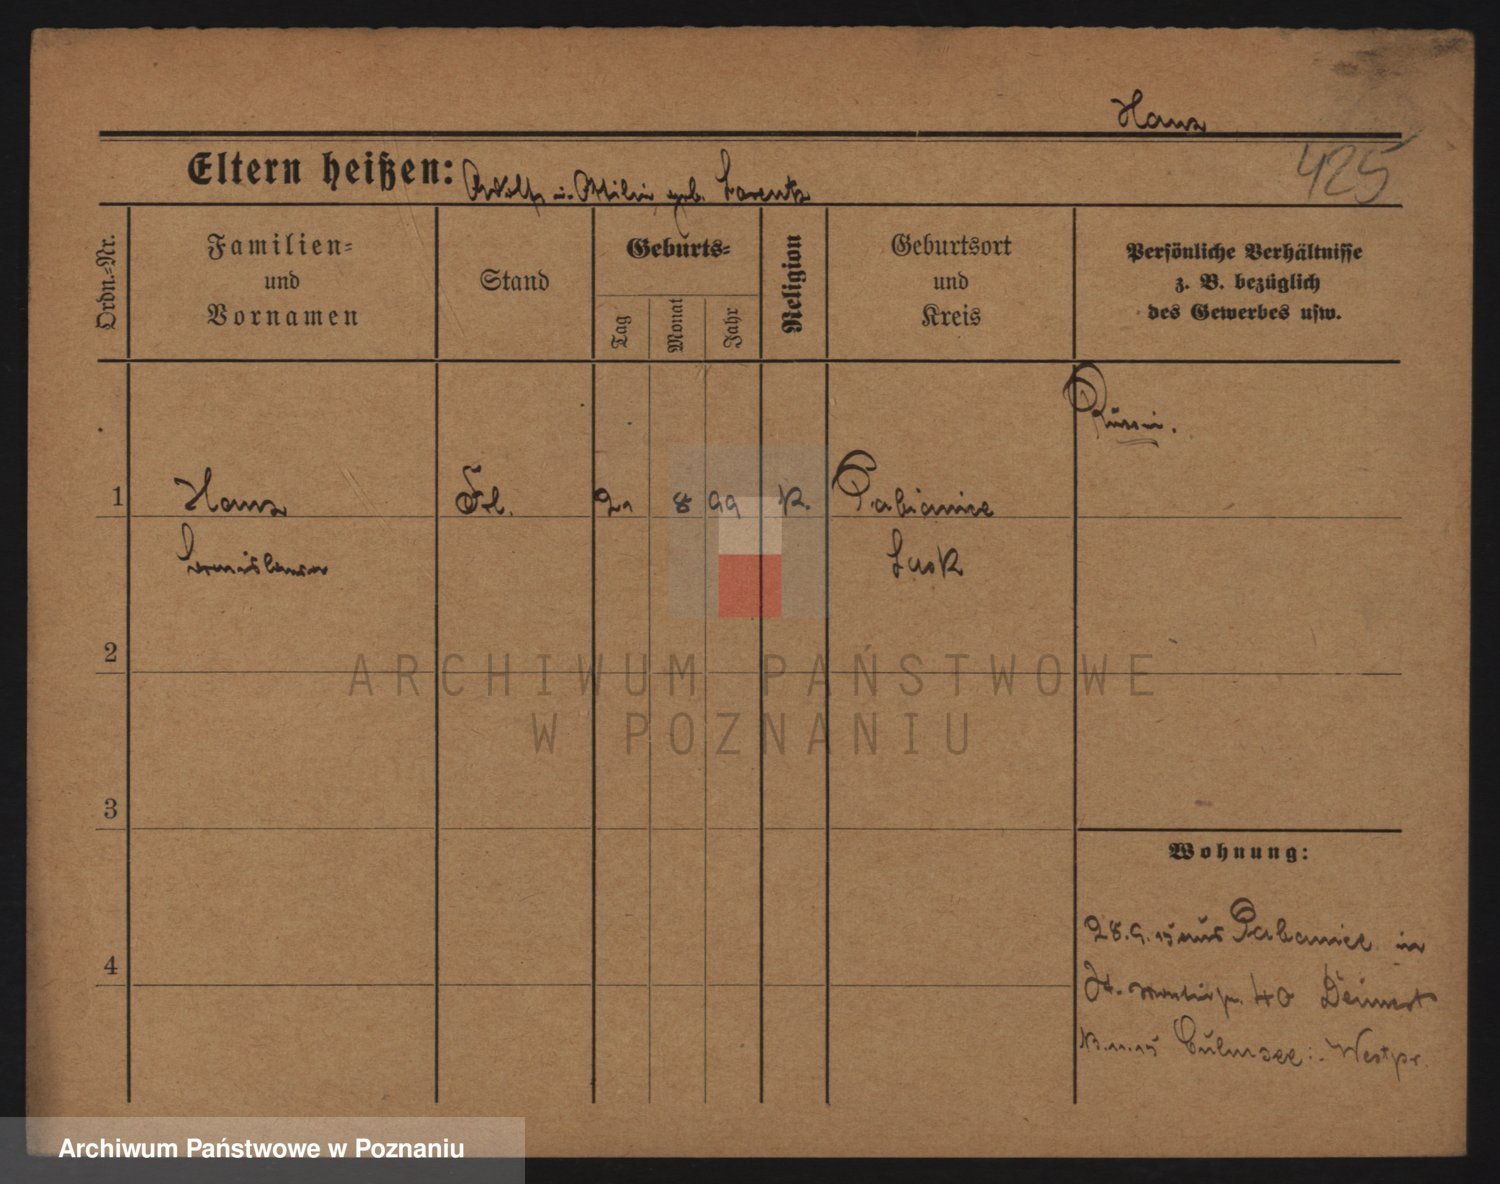 Hanz
425
Eltern heißen: Adolf u. Ottilie geb. Lorentz
Ordn.-Nr.
Familien-
und
Vornamen
Stand
Geburts-
Tag
Monat
Jahr
Religion
Geburtsort
und
Kreis
Persönliche Verhältnisse
z. B. bezüglich
des Gewerbes usw.
Russin.
1 Hanz Frl. 8 99 K. Pabianice
Lask
2
3
4
Wohnung:
28.9.15 aus Pabianice in
40
Culmsee i. Westpr.
ARCHIWUM PAŃSTWOWE
W POZNANIU
Archiwum Państwowe w Poznaniu